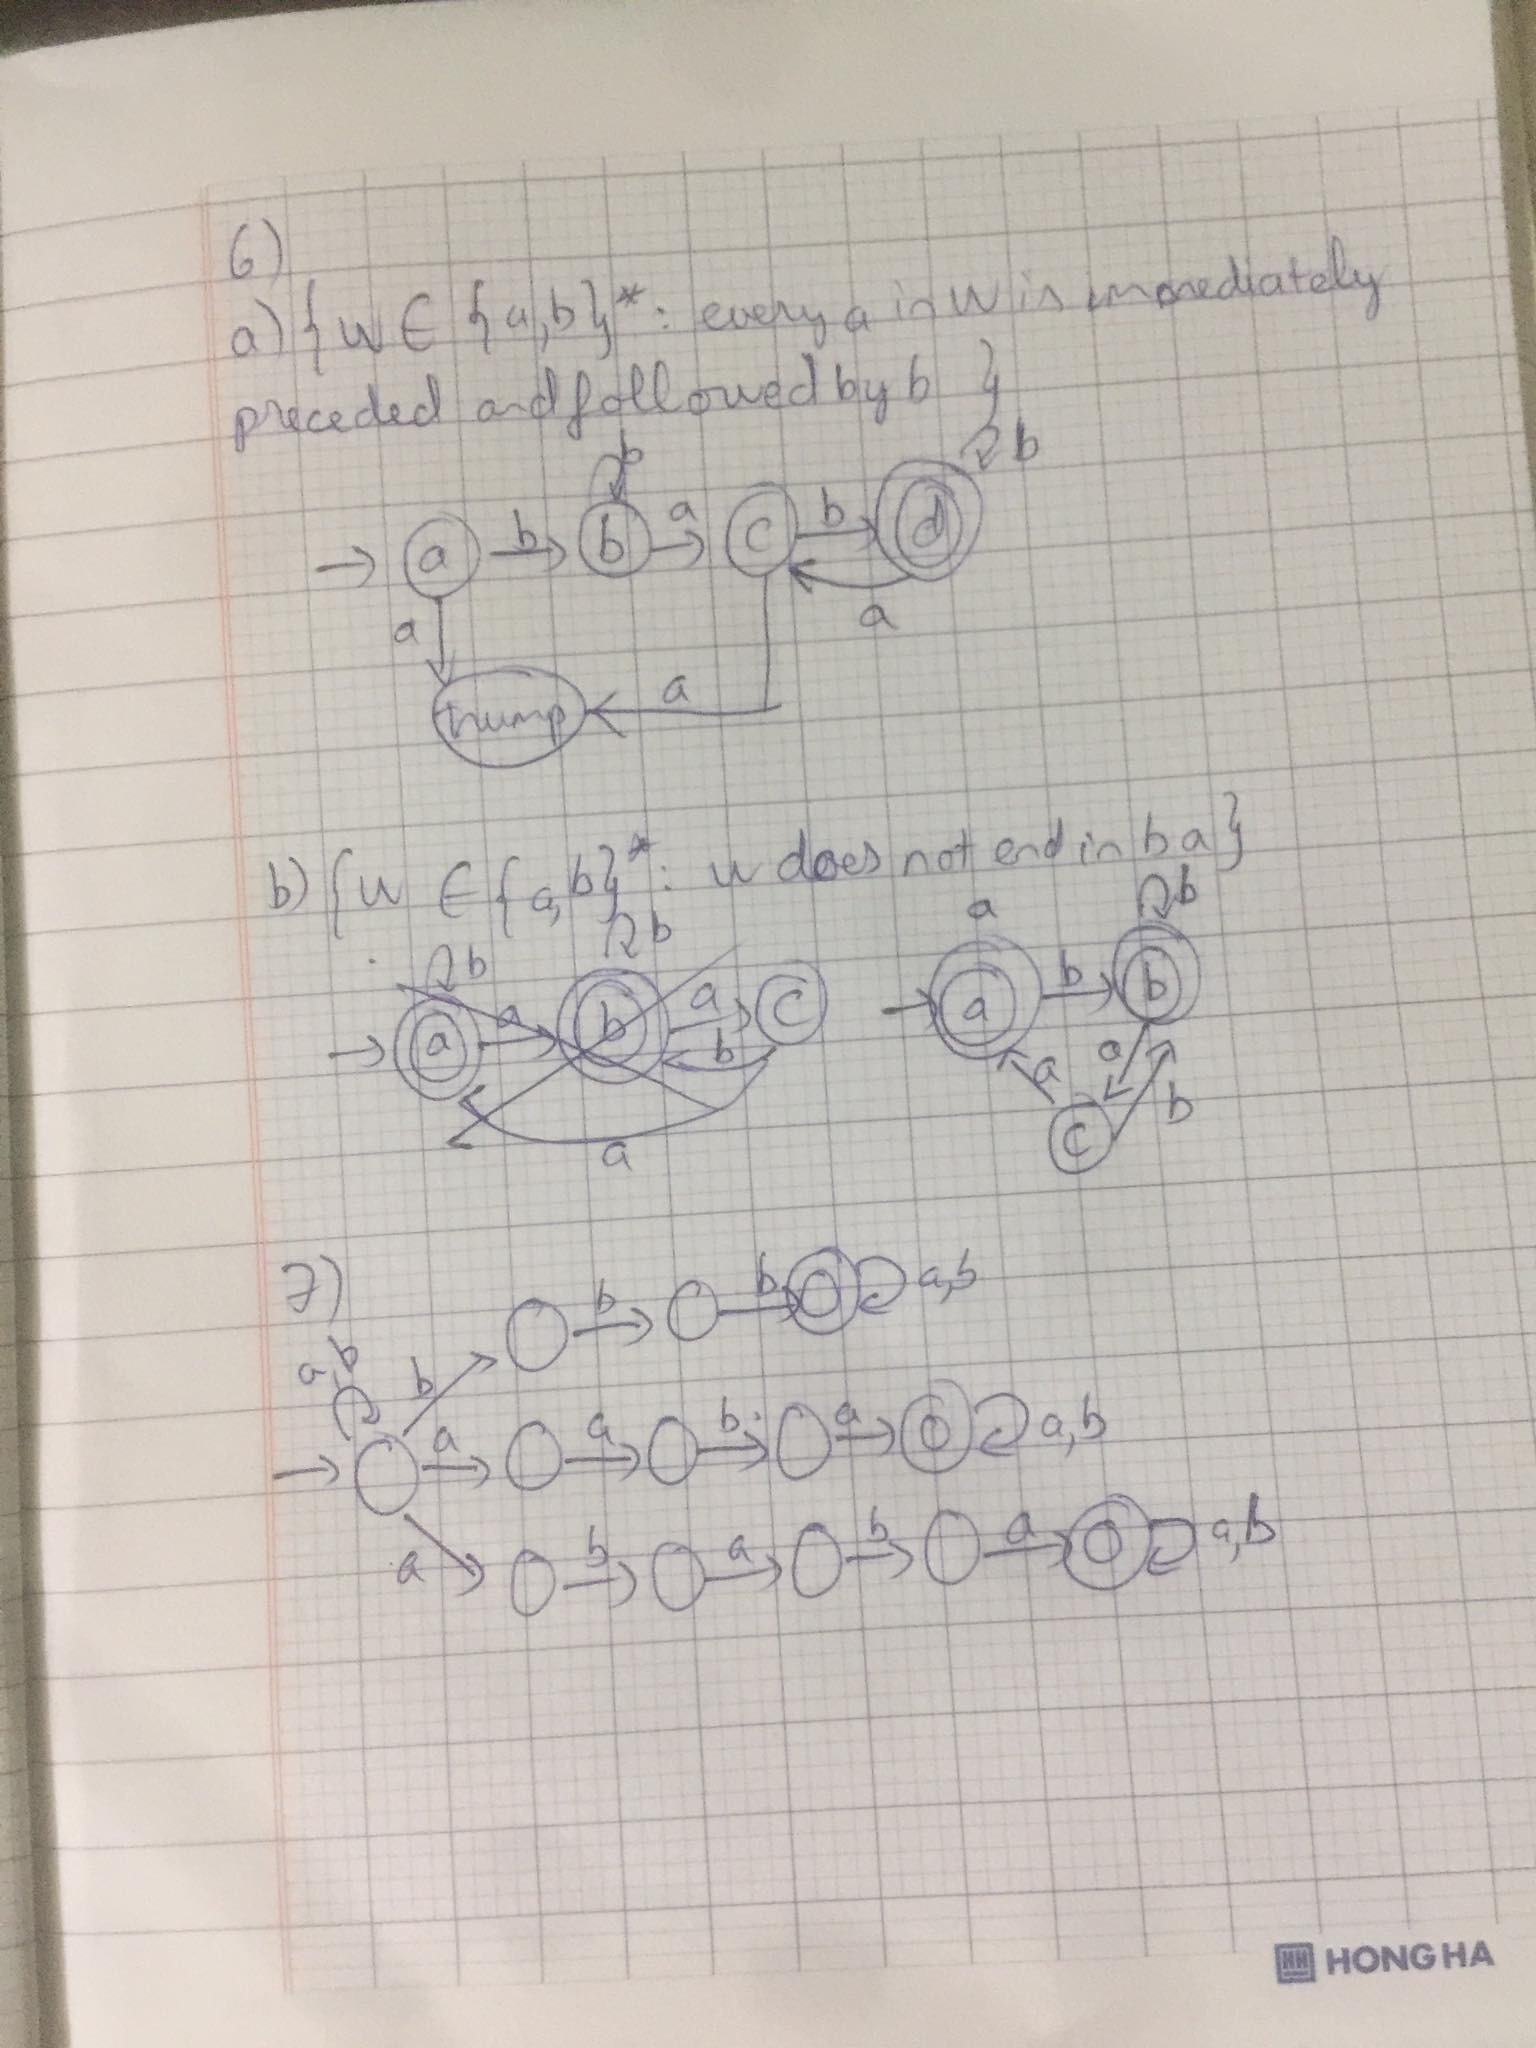 6)
a) { w ∈ {a,b}* : every a in w is immediately
preceded and followed by b }
b b
→ a b b a c b d
a a
trump a
b) { w ∈ {a,b}* : w does not end in ba }
b b a b
→ a a b a c → a b b
b a a b
a c
7)
b b a,b
a,b b
→ a a b a a,b
a b a b a a,b
HONG HA